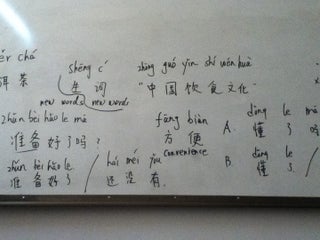 ěr chá shēng cí zhōng guó yǐn shí wén huà
洱茶 生词 "中国饮食文化"
new words new words
zhǔn bèi hǎo le má fāng biàn dǒng le má
准备好了吗? 方便 A. 懂了吗
convenience
zhǔn bèi hǎo le hái méi yǒu B. dǒng le
准备好了 / 还没有. 懂了.